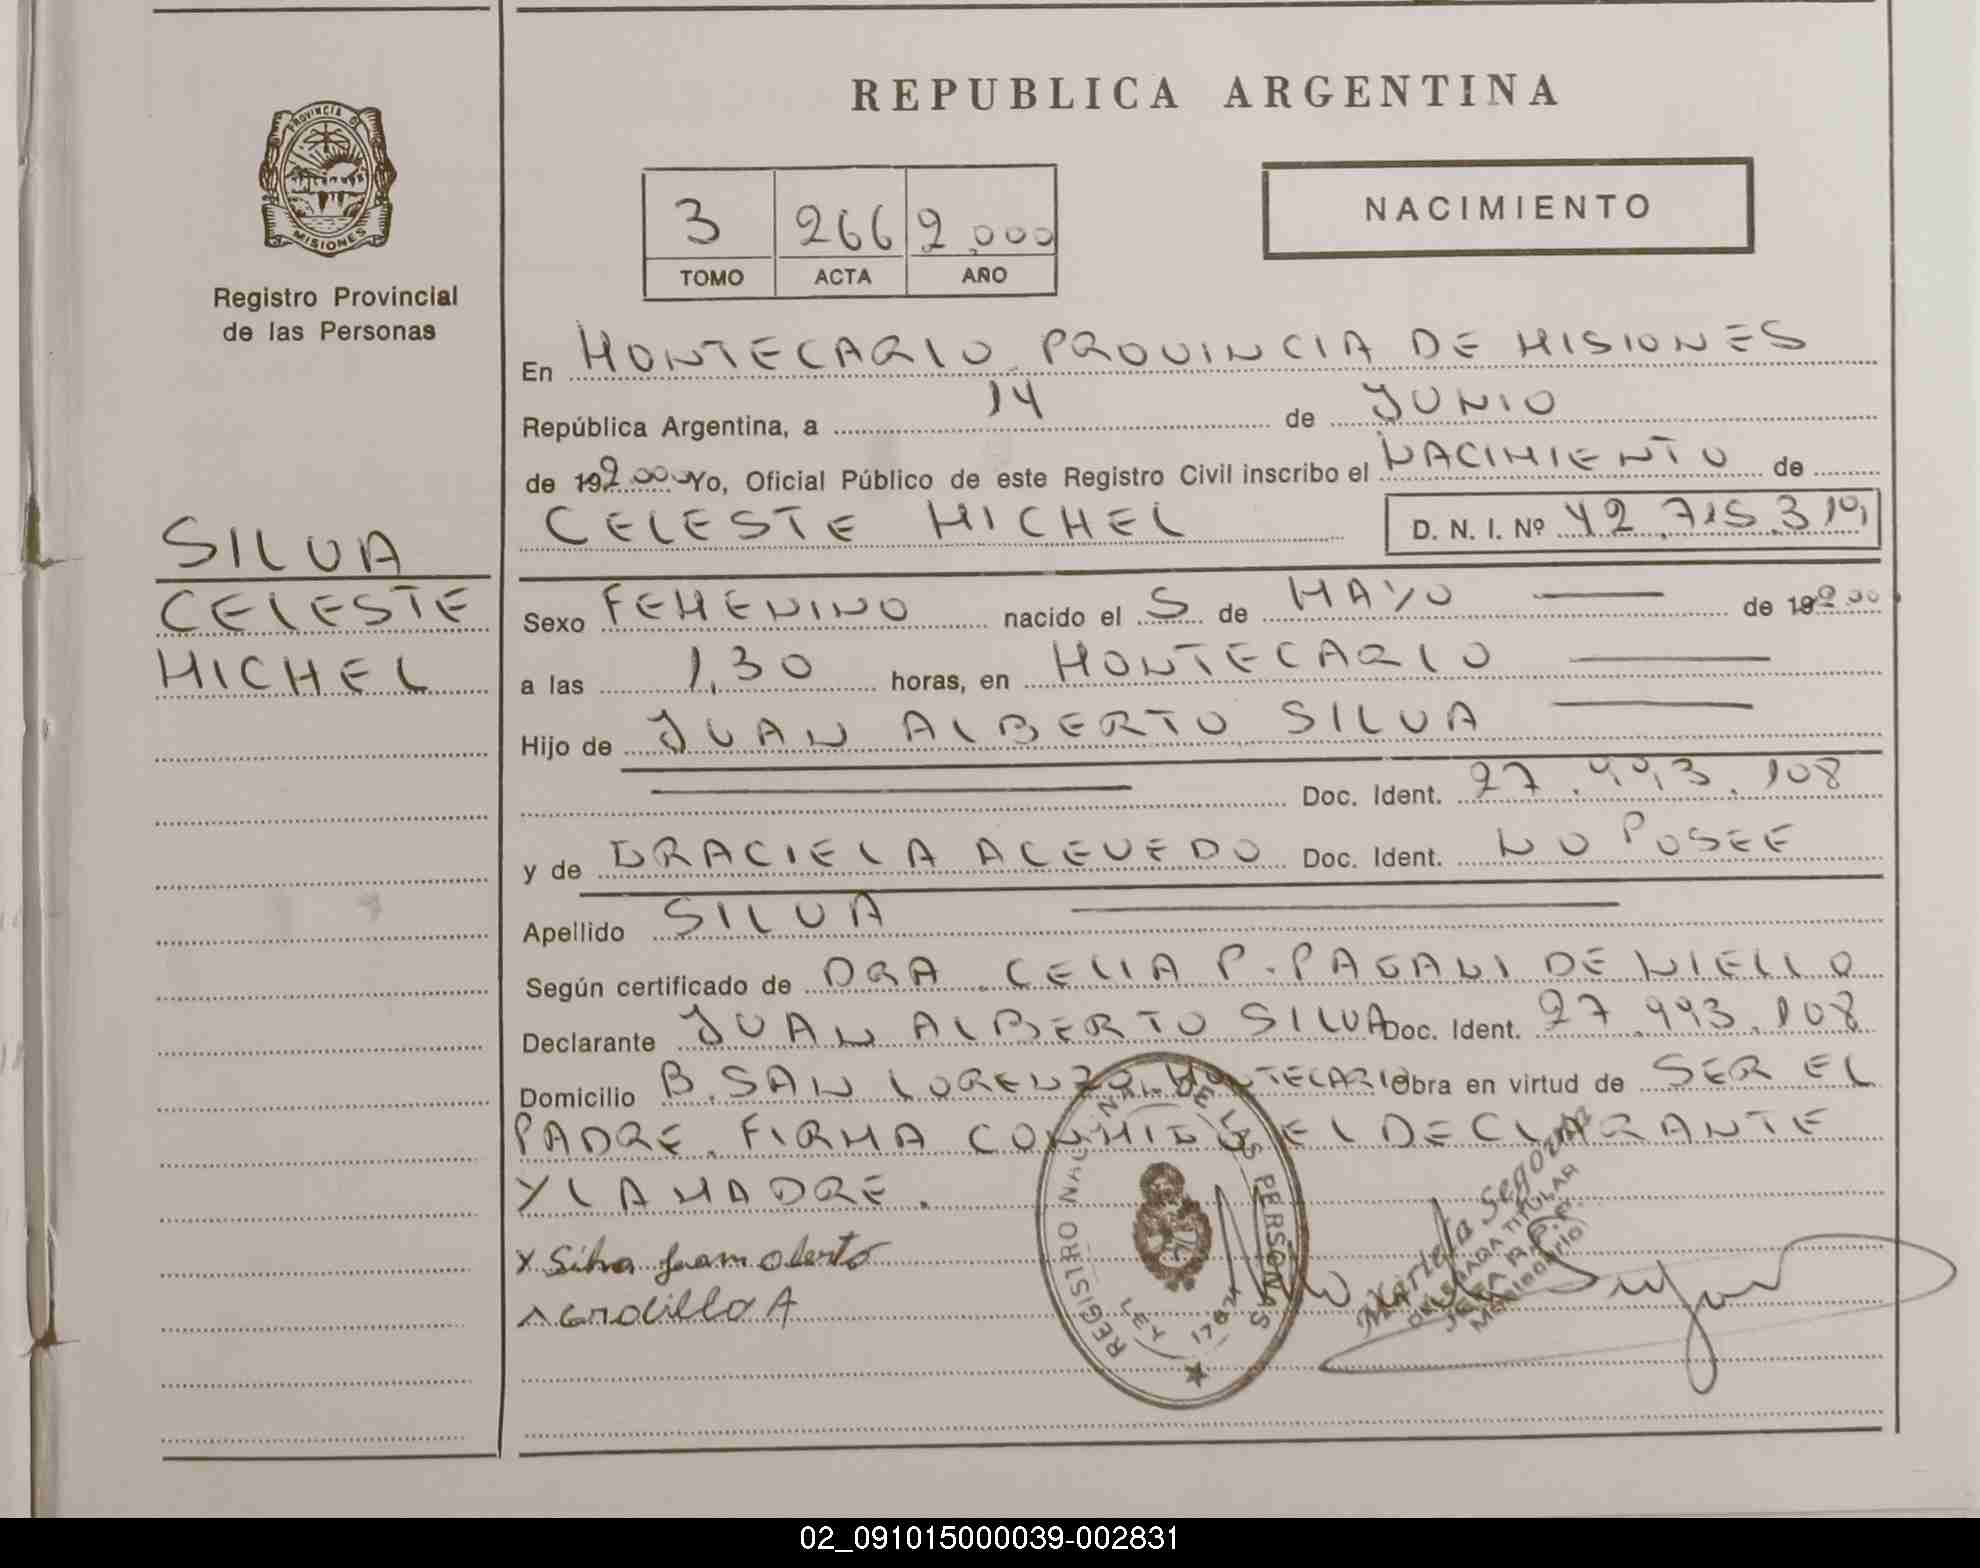 PROVINCIA DE
MISIONES
Registro Provincial
de las Personas
SILVA
CELESTE
MICHEL
REPUBLICA ARGENTINA
3 266 2.000
TOMO ACTA AÑO
NACIMIENTO
En MONTECARLO PROVINCIA DE MISIONES
República Argentina, a 14 de JUNIO
de 192.000 Yo, Oficial Público de este Registro Civil inscribo el NACIMIENTO de
CELESTE MICHEL D. N. I. Nº 42.715.310
Sexo FEMENINO nacido el 5 de MAYO de 192.000
a las 1,30 horas, en MONTECARLO
Hijo de JUAN ALBERTO SILVA
Doc. Ident. 27.993.108
y de GRACIELA ACEVEDO Doc. Ident. NO POSEE
Apellido SILVA
Según certificado de DRA. CELIA P. PAGANI DE NIELLO
Declarante JUAN ALBERTO SILVA Doc. Ident. 27.993.108
Domicilio B. SAN LORENZO, MONTECARLO Obra en virtud de SER EL
PADRE. FIRMA CONMIGO EL DECLARANTE
Y LA MADRE.
x Silva Juan alberto
REGISTRO NACIONAL DE LAS PERSONAS
LEY 17671
Mariela Segovia
DELEGADA TITULAR
JEFA R.P.P.
Montecarlo
02_091015000039-002831